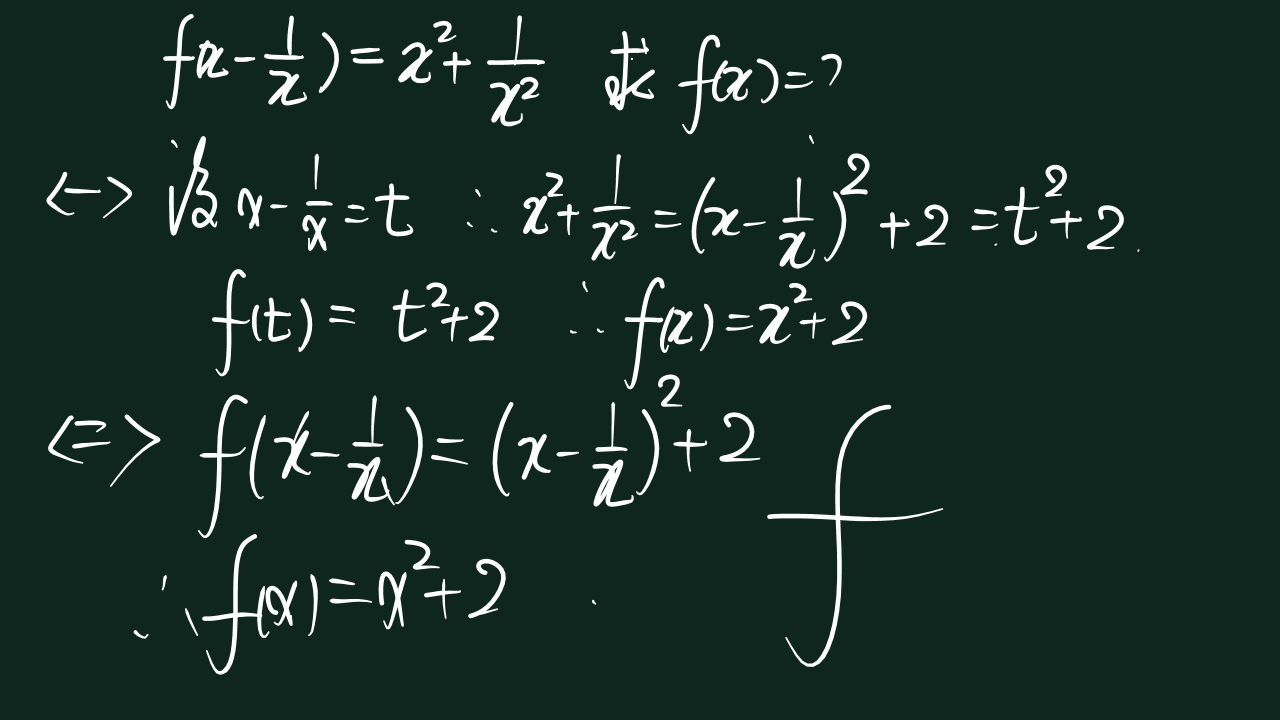 f(x-1/x)=x²+1/x² 求 f(x)=?
<-> 设 x-1/x=t ∴ x²+1/x²=(x-1/x)²+2=t²+2
f(t)= t²+2 ∴ f(x)=x²+2
<=> f(x-1/x)=(x-1/x)²+2
∴ f(x)=x²+2
f